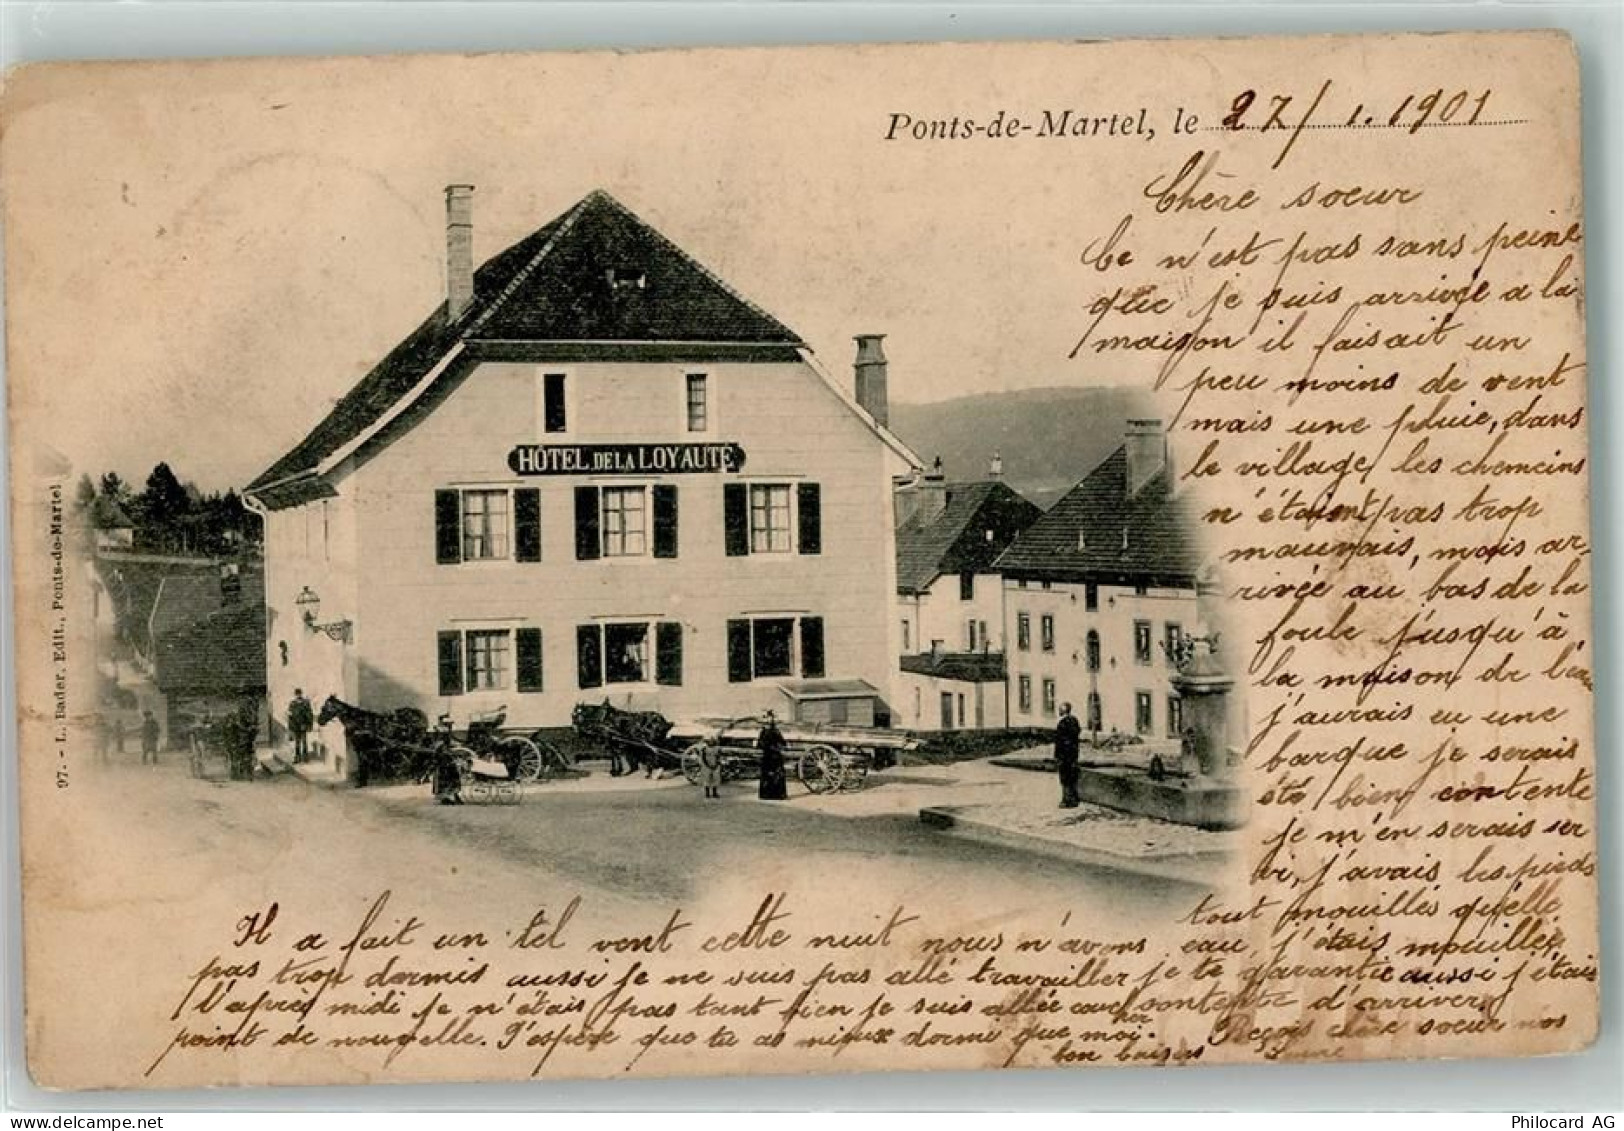 Ponts-de-Martel, le 27/1.1901
Chère soeur
Ce n'est pas sans peine
que je suis arrivée a la
maison il faisait un
peu moins de vent
mais une pluie, dans
le village les chemeins
n'étaient pas trop
mauvais, mais ar-
rivée au bas de la
foule j'usqu'à
la maison de l'eau
j'aurais eu une
barque je serais
été bien contente
je m'en serais ser
vi, j'avais les pieds
tout mouillés qu'elle
eau, j'étais mouillée,
je te garantie aussi j'étais
contente d'arriver
Reçois chère soeur nos
bon baisers
HÔTEL DE LA LOYAUTÉ
97. - L. Bader, Edit., Ponts-de-Martel
Il a fait un tel vent cette nuit nous n'avons
pas trop dormis aussi je ne suis pas allé travailler
l'après midi je n'étais pas tant bien je suis allée coucher
point de nouvelle. J'espère que tu as mieux dormi que moi.
Philocard AG